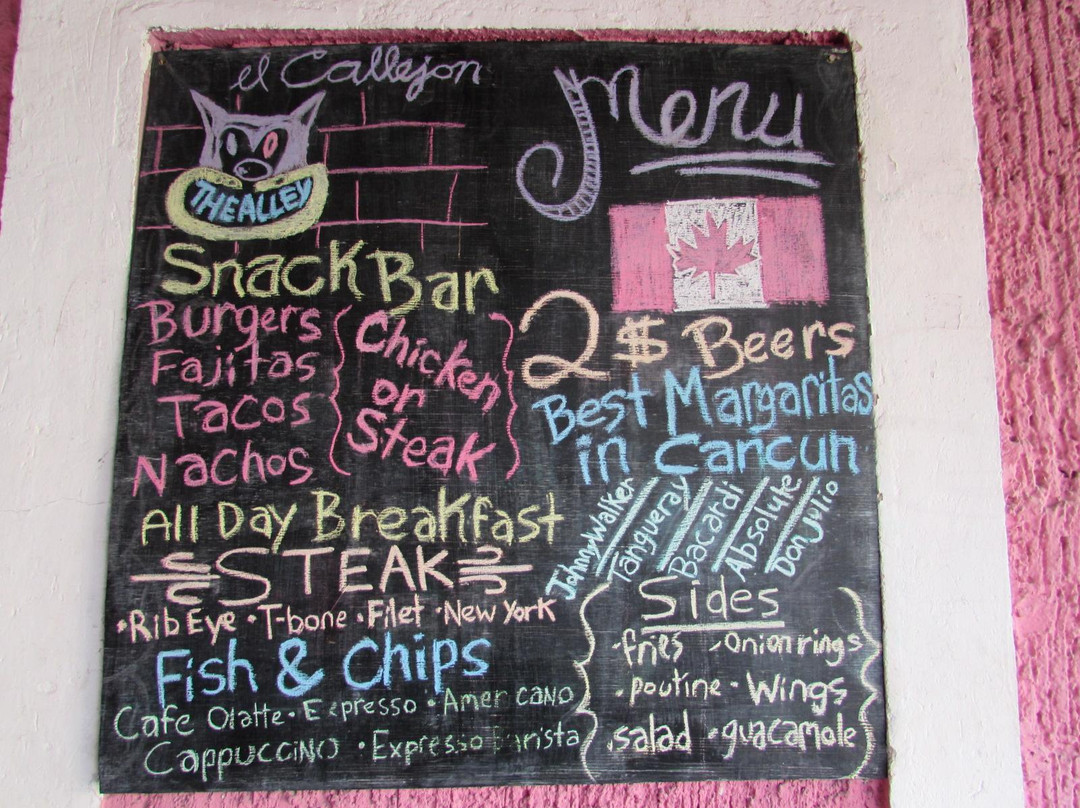 el Callejon
THE ALLEY
Snack Bar
Burgers
Fajitas
Tacos
Nachos
Chicken
or
Steak
All Day Breakfast
STEAK
•Rib Eye •T-bone •Filet •New York
Fish & Chips
Cafe Olatte • Expresso • Americano
Cappuccino • Expresso Barista
Menu
2$ Beers
Best Margaritas
in Cancun
Johny Walker
Tangueray
Bacardi
Absolute
Don Julio
Sides
•fries •Onion rings
•poutine •Wings
•salad •guacamole